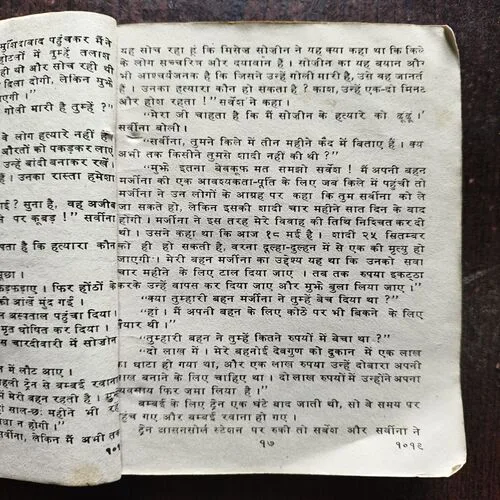 मुर्शिदाबाद पहुंचकर मैंने
होटलों में तुम्हें तलाश
ही थी और सोच रही थी
दिला दोगी, लेकिन मुझे
जाएगी ।"
गोली मारी है तुम्हें ?"
वे लोग हत्यारे नहीं हैं
औरतों को पकड़कर लाएं
उन्हें बांदी बनाकर रखें ।
हैं । उनका रास्ता हमेशा
गई ? सुना है, वह अजीब
से पर कूबड़ !" सर्वीना
है कि हत्यारा कौन
पूछा ।
फड़फड़ाए । फिर होंठों के
की आंखें मुंद गईं ।
अस्पताल पहुंचा दिया ।
मृत घोषित कर दिया ।
चारदीवारी में सोजीन
में लौट आए ।
ट्रेन से बम्बई रवाना
मेरी बहन रहती है ।
साल-छः महीने भी रह
न होगी ।"
सर्वीना, लेकिन मैं अभी तक
यह सोच रहा हूं कि मिसेज सोजीन ने यह क्या कहा था कि किले
के लोग सच्चरित्र और दयावान हैं । सोजीन का यह बयान और
भी आश्चर्यजनक है कि जिसने उन्हें गोली मारी है, उसे वह जानते
हैं । उनका हत्यारा कौन हो सकता है ? काश, उन्हें एक-दो मिनट
और होश रहता !" सर्वेश ने कहा ।
"मेरा जी चाहता है कि मैं सोजीन के हत्यारे को ढूंढूं ।"
सर्वीना बोली ।
"सर्वीना, तुमने किले में तीन महीने कैद में बिताए हैं । क्या
अभी तक किसीने तुमसे शादी नहीं की थी ?"
"मुझे इतना बेवकूफ मत समझो सर्वेश ! मैं अपनी बहन
मर्जीना की एक आवश्यकता-पूर्ति के लिए जब किले में पहुंची तो
मर्जीना ने उन लोगों के आग्रह पर कहा कि तुम सर्वीना को ले
जा सकते हो, लेकिन इसकी शादी चार महीने सात दिन के बाद
होगी । मर्जीना ने इस तरह मेरे विवाह की तिथि निश्चित कर दी
थी । उसने कहा था कि आज १८ मई है । शादी २५ सितम्बर
को ही हो सकती है, वरना दूल्हा-दुल्हन में से एक की मृत्यु हो
जाएगी । मेरी बहन मर्जीना का उद्देश्य यह था कि उनको सवा
चार महीने के लिए टाल दिया जाए । तब तक रुपया इकट्ठा
करके उन्हें वापस कर दिया जाए और मुझे बुला लिया जाए ।"
"क्या तुम्हारी बहन मर्जीना ने तुम्हें बेच दिया था ?"
"हां । मैं अपनी बहन के लिए कोठे पर भी बिकने के लिए
तैयार थी ।"
"तुम्हारी बहन ने तुम्हें कितने रुपयों में बेचा था ?"
"दो लाख में । मेरे बहनोई देवगुण को दूकान में एक लाख
का घाटा हो गया था, और एक लाख रुपया उन्हें दोबारा अपनी
साख बनाने के लिए चाहिए था । दो लाख रुपयों में उन्होंने अपना
व्यवसाय फिर जमा लिया है ।"
बम्बई के लिए ट्रेन एक घंटे बाद जाती थी, सो वे समय पर
पहुंच गए और बम्बई रवाना हो गए ।
ट्रेन आसनसोल स्टेशन पर रुकी तो सर्वेश और सर्वीना ने
१७
१०१९